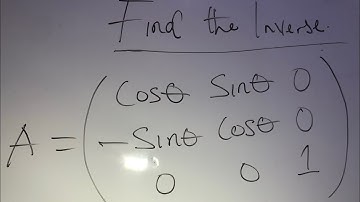 Find the Inverse.
Cosθ Sinθ 0
A = -Sinθ Cosθ 0
0 0 1